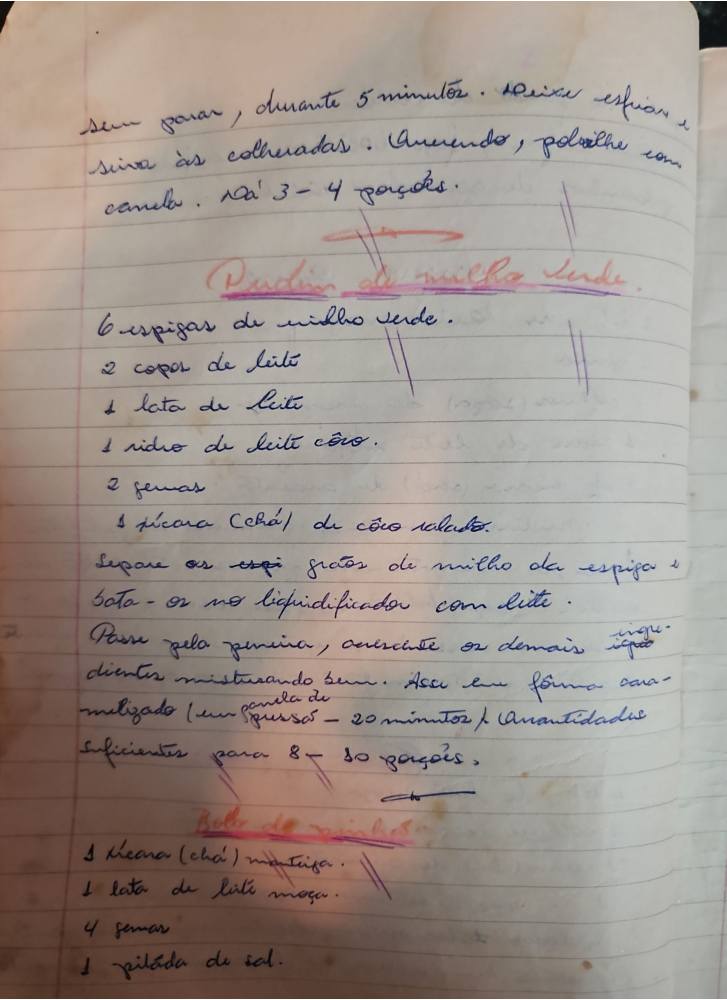 sem parar, durante 5 minutos. Deixe esfriar e
sirva às colheradas. Querendo, polvilhe com
canela. Dá 3 - 4 porções.
Pudim de milho verde.
6 espigas de milho verde.
2 copos de leite
1 lata de leite
1 vidro de leite côco.
2 gemas
1 xícara (chá) de côco ralado.
Separe os espi grãos de milho da espiga e
bata-os no liquidificador com leite.
Passe pela peneira, acrescente os demais ingre-
dientes misturando bem. Asse em fôrma cara-
melizado (em panela de pressã - 20 minutos). Quantidades
suficientes para 8 - 10 porções.
Bolo de
1 xícara (chá) manteiga.
1 lata de leite moça.
4 gemas
1 pitáda de sal.